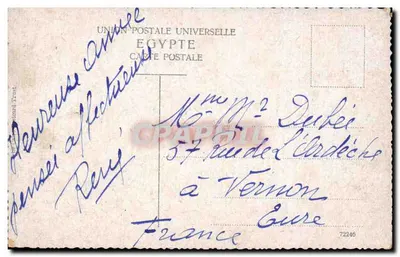 UNION POSTALE UNIVERSELLE
EGYPTE
CARTE POSTALE
Heureuse année
pensée affectueuse
René
Mme Mr Dubée
57 Rue de L'Ardèche
à Vernon
Eure
France
CPARAMA
72240